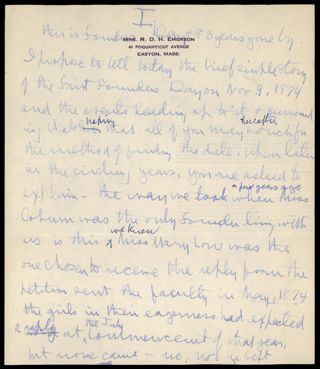 I
MRS. R. D. H. EMERSON
49 POQUANTICUT AVENUE
EASTON, MASS.
this is Founders Day + 83 years gone by
I propose to tell today the brief simple story
of the first Founders Day on Nov 9, 1874
and the events leading up to it +
hoping
hereafter
that all of you may
the method of finding the date, when later
in the circling years, you are asked to
explain - the way we took when Miss
a few years ago
Coburn was the only Founder living with
we knew
us is this Miss Mary Low was the
one chosen to receive the reply from the
petition sent the faculty in May, 1874
the girls in their eagerness had expected
a reply at the July commencement of that year,
but none came - no, nor